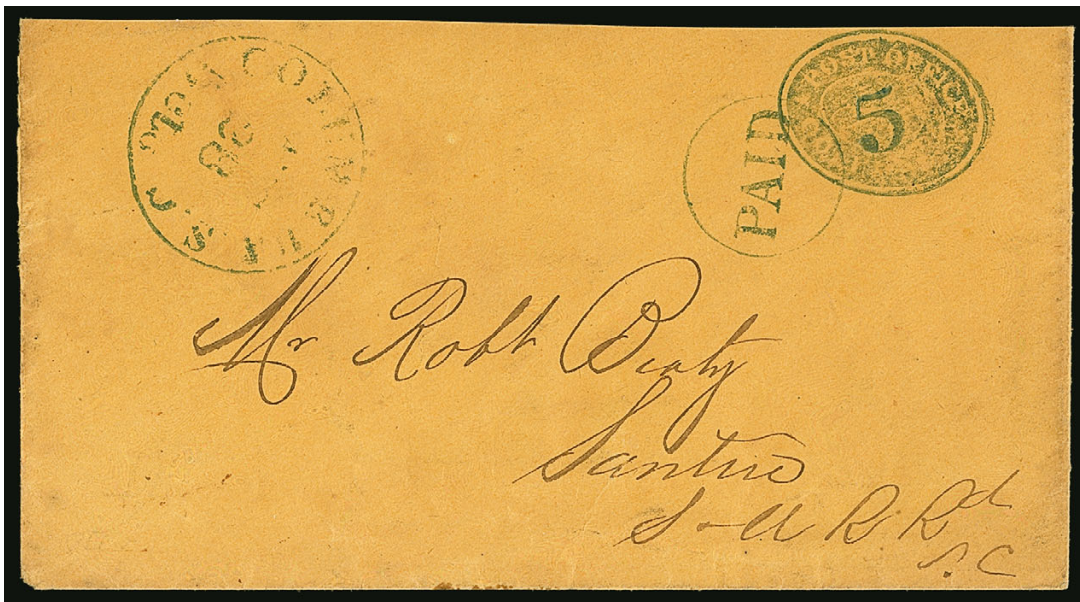 COLUMBIA S.C.
28
PAID
POST OFFICE
5
Mr Robt Beaty
Santuc
S & U R Rd
S.C